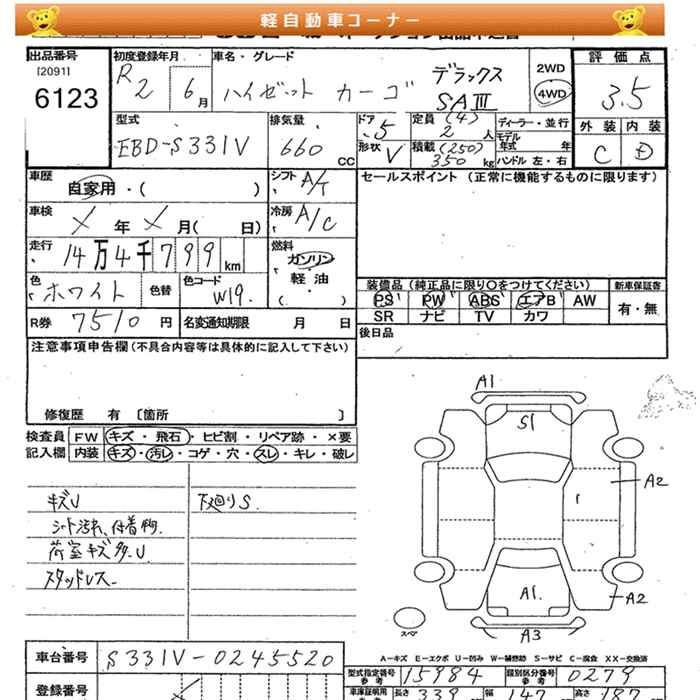 軽自動車コーナー
出品番号
[2091]
6123
初度登録年月
R2 6月
車名・グレード
ハイゼット カーゴ デラックス SAⅢ
2WD
4WD
評価点
3.5
外装 内装
C D
型式
EBD-S331V
排気量
660 CC
ドア 5
形状 V
定員 (4) 2 人
積載 (250) 350 kg
ディーラー・並行
モデル年式 年
ハンドル 左・右
車歴
自家用・( )
シフト A/T
車検
X 年 X 月( 日)
冷房 A/C
走行
14万4千799 km
燃料
ガソリン
軽・油
( )
色
ホワイト
色替
色コード
W19.
R券 7510 円
名変通知期限 月 日
セールスポイント(正常に機能するものに限ります)
装備品(純正品に限り○をつけてください)
PS PW ABS エアB AW
SR ナビ TV カワ
新車保証書
有・無
後日品
注意事項申告欄(不具合内容等は具体的に記入して下さい)
修復歴 有 〔箇所 〕
検査員記入欄
FW キズ・飛石・ヒビ割・リペア跡・×要
内装 キズ・汚レ・コゲ・穴・スレ・キレ・破レ
キズU
シート汚れ、付着物.
荷室キズ多.U
スタッドレス
下廻りS
A1
S1
A2
A1
A2
A3
スペア
A-キズ E-エクボ U-凹み W-補修跡 S-サビ C-腐食 XX-交換済
車台番号 S331V-0245520
登録番号
型式指定番号 参考 15984
類別区分番号 参考 0279
長さ 339 幅 147 高さ 187